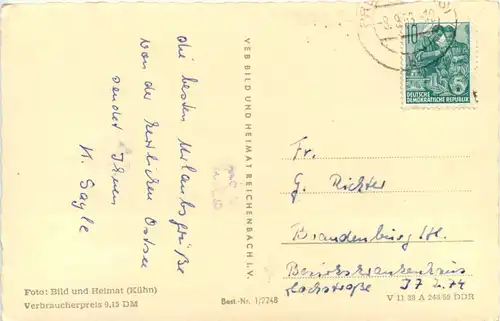 Die besten Urlaubsgrüße
von der herrlichen Ostsee
sendet Ihnen
K. Sagle
VEB BILD UND HEIMAT REICHENBACH I. V.
10
6
DEUTSCHE
DEMOKRATISCHE REPUBLIK
Fr.
G. Richter
Brandenburg/H.
Bezirkskrankenhaus
Hochstraße
Foto: Bild und Heimat (Kühn)
Verbraucherpreis 0,15 DM
Best.-Nr. 1/7248
V 11 28 A 248/59 DDR